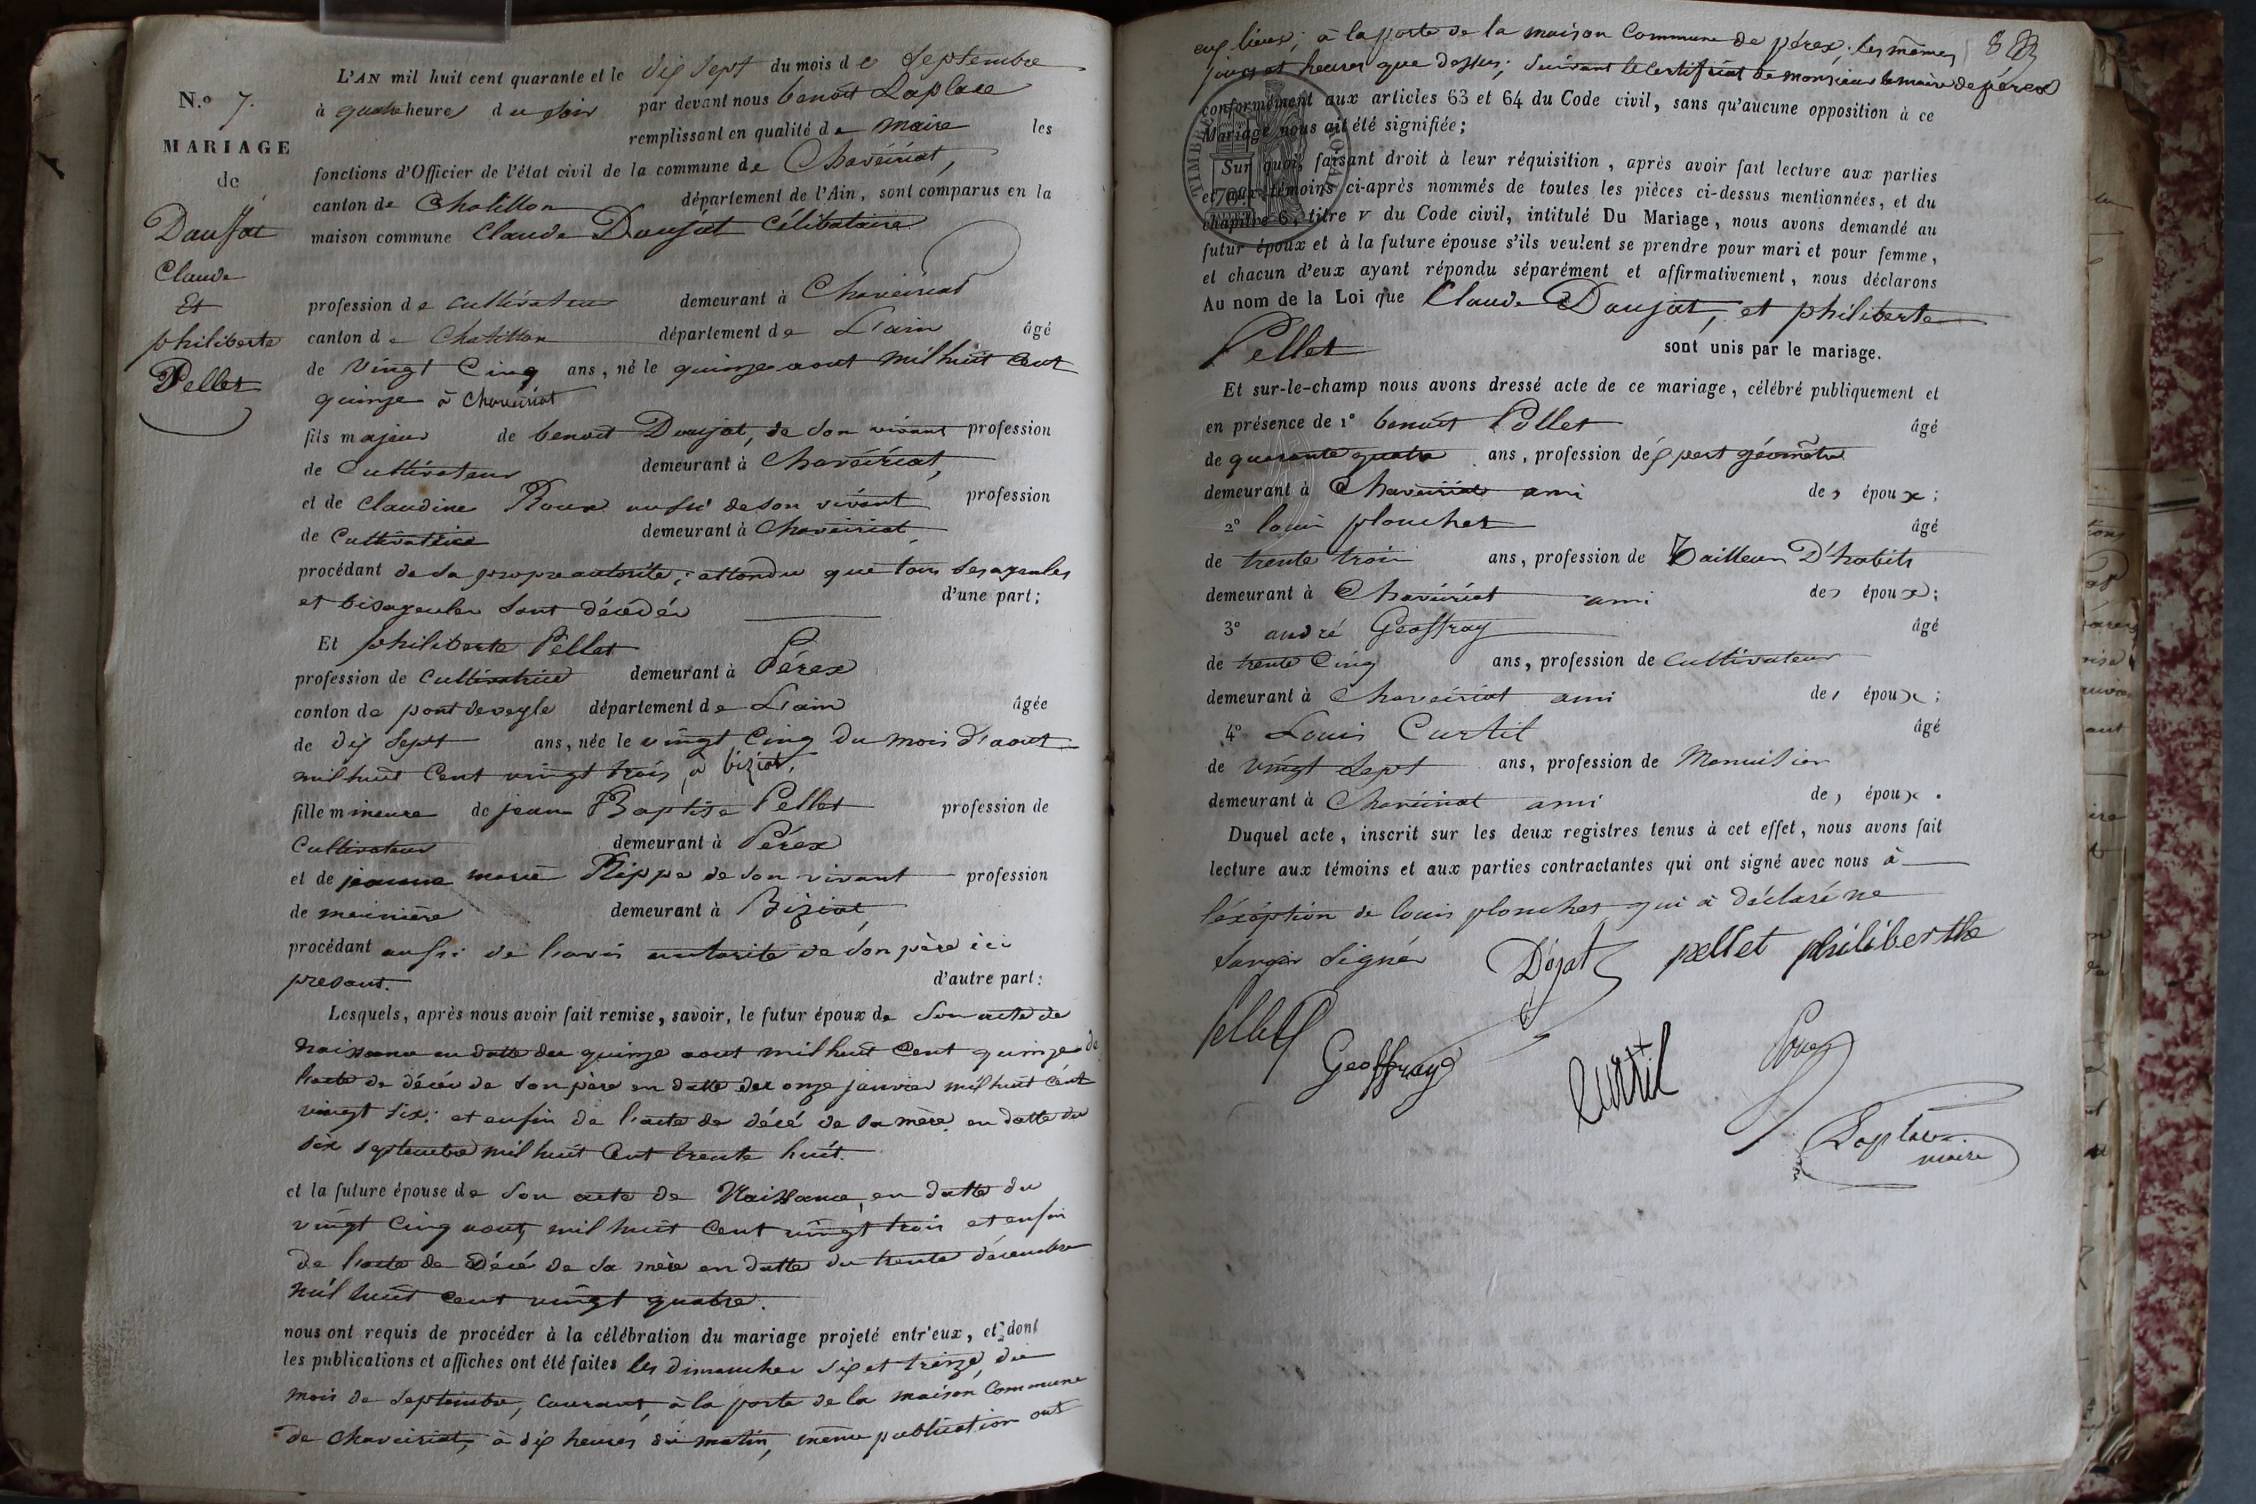 N.o 7.
MARIAGE
de
Daujat
Claude
Et
philiberte
Pellet
L'AN mil huit cent quarante et le dix sept du mois de Septembre
à quatre heures du soir par devant nous benoit Laplace
remplissant en qualité de maire les
fonctions d'Officier de l'état civil de la commune de Chaveiriat,
canton de Chatillon département de l'Ain, sont comparus en la
maison commune Claude Daujat Célibataire
profession de cultivateur demeurant à Chaveiriat
canton de Chatillon département de L'ain âgé
de vingt Cinq ans, né le quinze aout mil huit Cent
quinze à Chaveiriat
fils majeur de benoit Daujat, de son vivant profession
de Cultivateur demeurant à Chaveiriat,
et de Claudine Roux aussi de son vivant profession
de Cultivatrice demeurant à Chaveiriat,
procédant de sa propre autorité; attendu que tous ses ayeules
et bisayeules sont décédés d'une part;
Et philiberte Pellet
profession de Cultivatrice demeurant à Pérex
canton de pont de veyle département de L'ain âgée
de dix sept ans, née le vingt Cinq du mois d'aout
mil huit Cent vingt trois, à biziat,
fille mineure de jean Baptiste Pellet profession de
Cultivateur demeurant à Pérex
et de jeanne marie Rippe de son vivant profession
de meunière demeurant à Biziat,
procédant aussi de l'avis autorité de son père ici
present. d'autre part:
Lesquels, après nous avoir fait remise, savoir, le futur époux de Son acte de
Naissance en datte du quinze aout mil huit Cent quinze de
l'acte de décés de son père en datte du onze janvier mil huit Cent
vingt six: et enfin de l'acte de décé de sa mère en datte du
six septembre mil huit Cent trente huit.
et la future épouse de Son acte de Naissance, en datte du
vingt Cinq aout, mil huit Cent vingt trois et enfin
De l'acte de Décé de sa mère en datte du trente décembre
mil huit cent vingt quatre.
nous ont requis de procéder à la célébration du mariage projeté entr'eux, et dont
les publications et affiches ont été faites les dimanches six et treize, du
mois de Septembre, Courant, à la porte de la maison Commune
de Chaveiriat, à dix heures du matin, même publication ont
eus lieux; à la porte de la maison Commune de pérex; les mêmes
jours et heures que dessus; Suivant le Certificat de monsieur le maire de pérex
conformément aux articles 63 et 64 du Code civil, sans qu'aucune opposition à ce
Mariage nous ait été signifiée;
Sur quoi, faisant droit à leur réquisition, après avoir fait lecture aux parties
et aux témoins ci-après nommés de toutes les pièces ci-dessus mentionnées, et du
chapitre 6, titre V du Code civil, intitulé Du Mariage, nous avons demandé au
futur époux et à la future épouse s'ils veulent se prendre pour mari et pour femme,
et chacun d'eux ayant répondu séparément et affirmativement, nous déclarons
Au nom de la Loi que Claude Daujat, et philiberte
Pellet sont unis par le mariage.
Et sur-le-champ nous avons dressé acte de ce mariage, célébré publiquement et
en présence de 1° benoit Pellet âgé
de quarante quatre ans, profession déxpert géomètre
demeurant à Chaveiriat ami des époux;
2° louis plouchet âgé
de trente trois ans, profession de Tailleur D'habits
demeurant à Chaveiriat ami des époux;
3° andré Geoffray âgé
de trente Cinq ans, profession de Cultivateur
demeurant à Chaveiriat ami des époux;
4° Louis Curtil âgé
de vingt Sept ans, profession de Menuisier
demeurant à Chaveiriat ami des époux.
Duquel acte, inscrit sur les deux registres tenus à cet effet, nous avons fait
lecture aux témoins et aux parties contractantes qui ont signé avec nous à
l'éxéption de louis plouchet qui a déclaré ne
savoir signer Dojat pellet philiberthe
Pellet
Geoffray Curtil
Laplace
maire